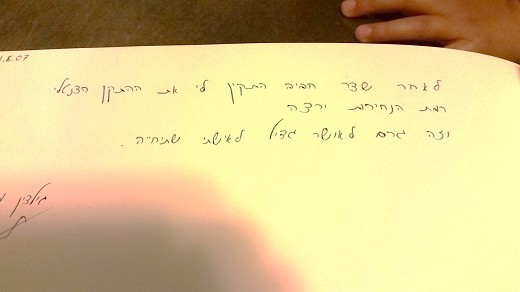 .8.07
לאחר שדר חביב התקין לי את ההתקן הדנטלי
רמת הנחירות ירדה
וזה גרם לאושר גדול לאישתי שתיחיה.